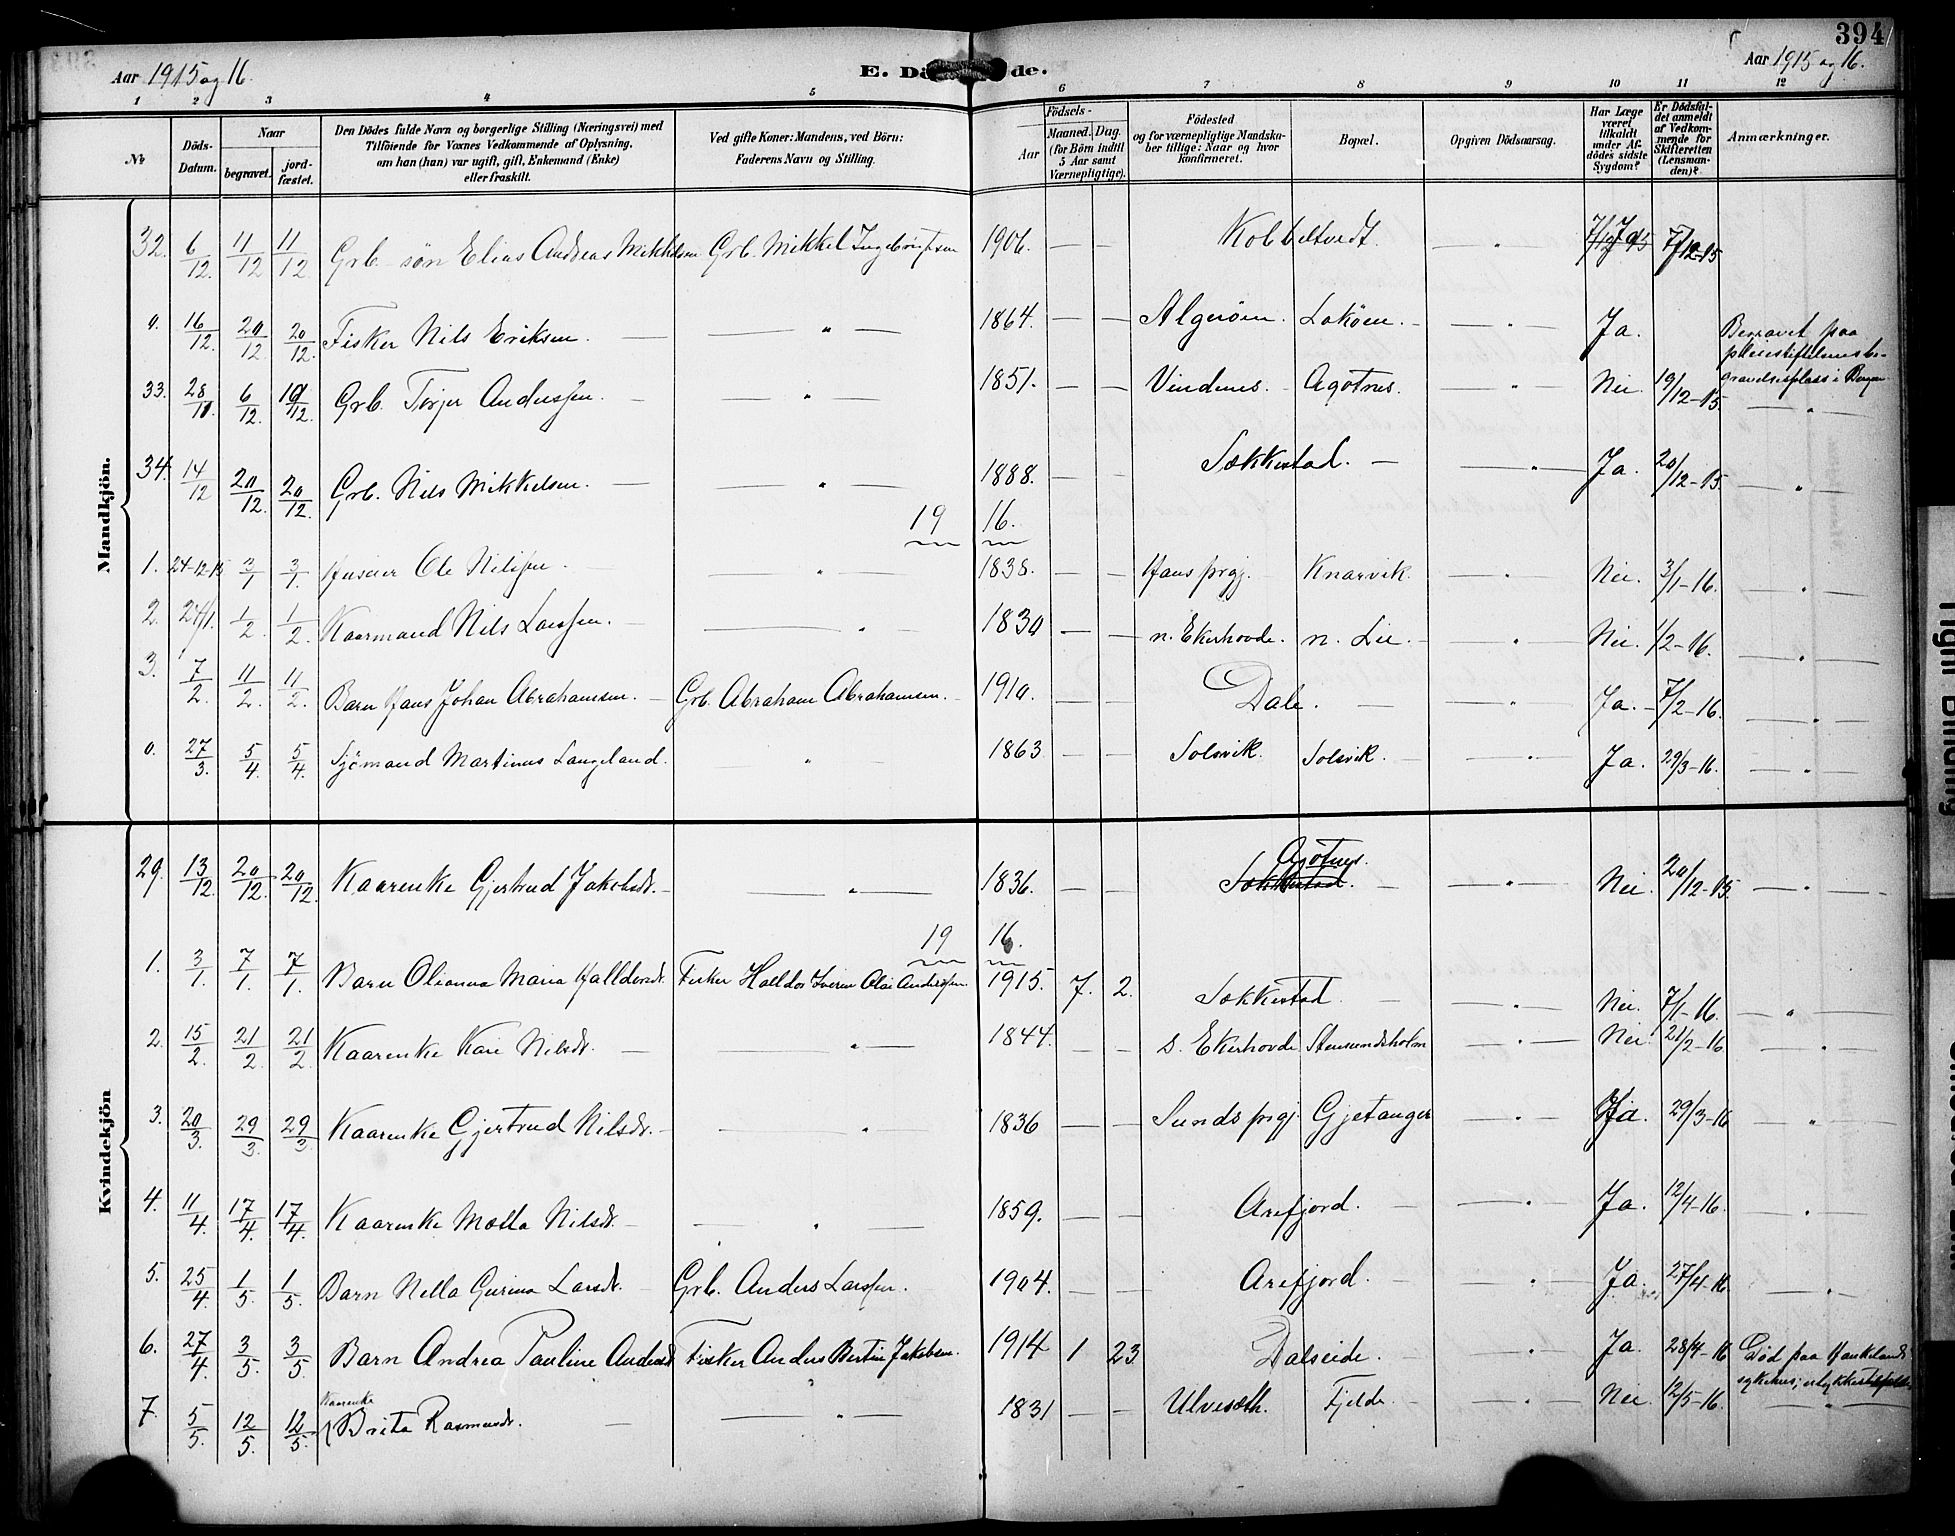 394
Aar 1915 og 16.
E. Dö de.
Aar 1915 og 16.
1 2 3 4 5 6 7 8 9 10 11 12
No
Döds-Datum.
Naar
begravet.
jord-fæstet.
Den Dödes fulde Navn og borgerlige Stilling (Næringsvei) med
Tilföiende for Voxnes Vedkommende af Oplysning,
om han (hun) var ugift, gift, Enkemand (Enke)
eller fraskilt.
Ved gifte Koner: Mandens, ved Börn:
Faderens Navn og Stilling.
Födsels-
Aar
Maaned. Dag.
(for Börn indtil
5 Aar samt
Værnepligtige).
Födested
og for værnepligtige Mandska-
ber tillige: Naar og hvor
konfirmeret.
Bopæl.
Opgiven Dödsaarsag.
Har Læge
været
tilkaldt
under Af-
dödes sidste
Sygdom?
Er Dödsfal-
det anmeldt
af Vedkom-
mende for
Skifteretten
(Lensman-
den)?
Anmærkninger.
Mandkjön.
32. 6/12. 11/12 11/12 Grb. sön Elias Andreas Mikkelsen Grb. Mikkel Ingebrigtsen 1906. — — Kolbeltvedt. — " — Ja 7/12-15
0. 16/12. 20/12 20/12. Fisker Nils Eriksen. — — " — 1864. — — Algeröen. Loköen. — " — Ja. Begravet paa
pleiestiftelsens be-
gravelsesplass i Bergen
33. 28/11. 6/12. 19/12. Grb. Torjer Anderssen. — — " — 1851. — — Vindenes. Agotnes. — " — Nei. 19/12-15. — " —
34. 14/12 20/12. 20/12. Grb. Nils Mikkelsen. — — " — 1888. — — Sekkestad. — — " — Ja. 20/12-15. — " —
19 16.
1. 24-12-15 3/1 3/1. Huseier Ole Nilssen. — — " — 1838. — — Haus prgj. Knarvik. — " — Nei. 3/1-16. — " —
2. 24/1. 1/2. 1/2. Kaarmand Nils Larssen. — — " — 1830 — — n. Ekerhovde. n. Lie. — " — Nei. 1/2-16. — " —
3. 7/2. 11/2. 11/2. Barn Hans Johan Abrahamsen. — Grb. Abraham Abrahamsen. — 1910. — — Dale. — — " — Ja. 7/2-16. — " —
0. 27/3. 5/4 5/4 Sjömand Martinus Langeland. — " — 1863 — — Solsvik. Solsvik. — " — Ja. 29/3-16. — " —
Kvindekjön
29. 13/12. 20/12. 20/12. Kaarenke Gjertrud Jakobsdr. — — " — 1836. — — Agotnes.
Sekkestad. — — " — Nei. 20/12-15. — " —
19 16.
1. 3/1. 7/1. 7/1. Barn Olianna Maria Halldorsdr. Fisker Halldor Iveren Olai Anderssen 1915. 7. 2. Sekkestad. — " — Nei. 7/1-16. — " —
2. 15/2. 21/2. 21/2. Kaarenke Kari Nilsdr. — — " — 1844. — — s. Ekerhovde Steusundsholm — " — Nei. 21/2-16. — " —
3. 20/3. 29/3. 29/3. Kaarenke Gjertrud Nilsdr. — — " — 1836 — — Sunds prgj. Gjetanger — " — Ja. 29/3-16 — " —
4. 11/4. 17/4. 17/4. Kaarenke Malla Nilsdr. — — " — 1859. — — Arefjord. — — " — Ja. 12/4-16. — " —
5. 25/4. 1/5. 1/5. Barn Nella Gurina Larsdr. — Grb. Anders Larssen. 1904. — — Arefjord. — " — Ja. 27/4-16. — " —
6. 27/4. 3/5. 3/5. Barn Andrea Pauline Andersdr Fisker Anders Bertin Jakobsen. 1914 1 23 Dalseide. — " — Ja. 28/4-16 Död paa Haukelands
sykehus; ulykkestilfelde
7. 5/5. 12/5. 12/5. Kaarenke
Brita Rasmusdr. — — " — 1831 — — Ulveseth. Fjelde. — " — Nei. 12/5-16. — " —
Tight Binding